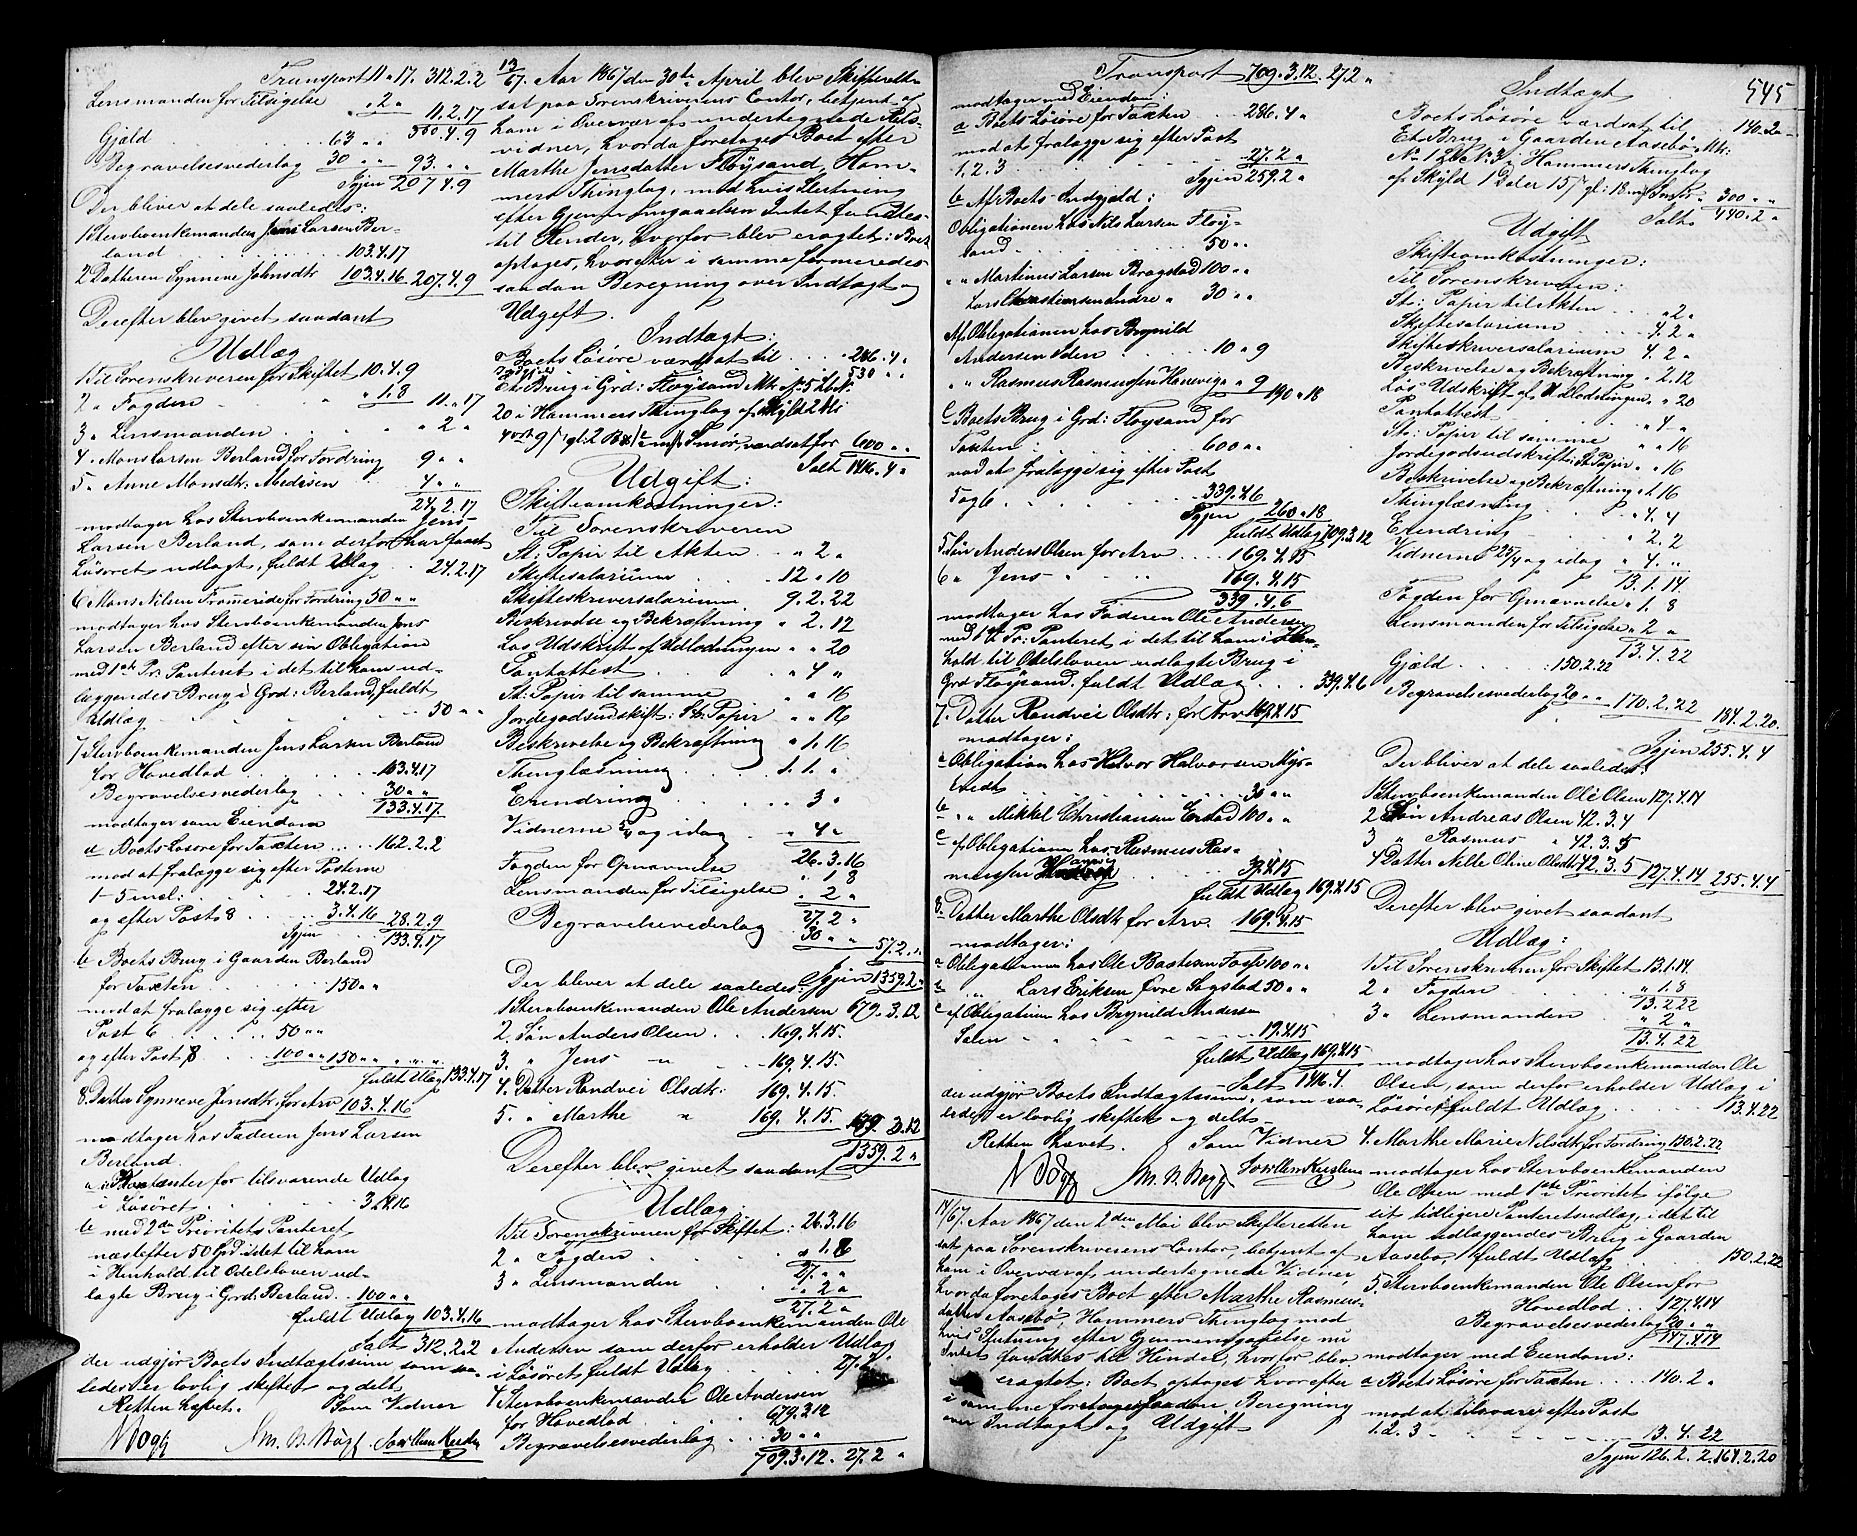 Transport 11 " 17. 312.2.2
Lensmanden for Tilsigelse " 2 " 11.2.17
360.4.9
Gjæld 63 " "
Begravelsesvederlag 30 " " 93. " "
Igjen 207.4.9
Der bliver at dele saaledes:
1 Stervboenkemanden Jens Larsen Ber-
land 103.4.17
2 Datteren Synneve Johnsdtr 103.4.16 207.4.9
Derefter blev givet saadant
Udlæg
1 Til Sorenskriveren for Skiftet 10.4.9
2 " Fogden " 1.8 11 " 17
3 " Lensmanden " 2 "
4 " Mons Larsen Berland for Fordring 9 " "
5 " Anne Monsdtr: 4 " "
24.2.17
modtager hos Stervboenkemanden Jens
Larsen Berland, som derfor har faaet
Løsøret udlagt, fuldt Udlæg 24.2.17
6 Mons Nilsen for Fordring 50 " "
modtager hos Stervboenkemanden Jens
Larsen Berland efter sin Obligation
med 1ste Pr: Panteret i det til ham ud-
læggendes Brug i Grd: Berland, fuldt
Udlæg 50 " "
7 Stervboenkemanden Jens Larsen Berland
for Hovedlod 103.4.17
Begravelsesvederlag 30 " "
133.4.17
modtager som Eiendom
a Boets Løsøre for Taxten 162.2.2
mod at fralægge sig efter Posterne
1-5 incl: 24.2.17
og efter Post 8 3.4.16 28.2.9
Igjen 133.4.17
b Boets Brug i Gaarden Berland
for Taxten 150 " "
mod at fralægge sig efter
Post 6 50 " "
og efter Post 8 100 " " 150 " " " " "
fuldt Udlæg 133.4.17
8 Datter Synneve Jensdtr. for Arv 103.4.16
modtager hos Faderen Jens Larsen
Berland.
a i Contanter for tilsvarende Udlæg
i Løsøret 3.4.16
b med 2den Prioritets Panteret
næstefter 50 Spd i det til ham
i Henhold til Odelsloven ud-
lagte Brug i Grd: Berland 100 " "
fuldt Udlæg 103.4.16
Salt 312.2.2
der udgjør Boets Indtægtssum som saa-
ledes er lovlig skiftet og delt.
Retten hævet. Som Vidner
13/67. Aar 1867 den 30te April blev Skifteretten
sat paa Sorenskriverens Contor, betjent af
ham i Overvær af undertegnede Rets-
vidner, hvorda foretages Boet efter
Marthe Jensdatter Fløysand, Ham-
mers Thinglag, med hvis Slutning
efter Gjennemgaaelsen Intet fandtes
til Hinder, hvorfor blev eragtet: Boet
optages, hvorefter i samme formeredes
saadan Beregning over Indtægt og
Udgift.
Indtægt:
Boets Løsøre værdsat til 286.4 "
530 " "
Et Brug i Grd: Fløysand Mk N: 5 Lb N:
20 i Hammers Thinglag af Skyld 2 Mk
Smør, værdsat for 600 " "
Salt 1416.4 "
Udgift:
Skifteomkostninger:
Til Sorenskriveren
St: Papir til Akten " 2 "
Skiftesalarium 12 " 10
Skifteskriversalarium 9.2.22
Beskrivelse og Bekræftning " 2.12
Løs Udskrift af Udlodningen " " 20
Pantattest " 4 "
St: Papir til samme " " 16
Jordegodsudskift: St: Papir " " 16
Beskrivelse og Bekræftning " 1.16
Thinglæsning 1.1. "
Erindring " 3 "
Vidnerne og idag " 4 "
26.3.16
Fogden for Opnævnelse " 1.8
Lensmanden for Tilsigelse " 2 "
27.2 "
Begravelsesvederlag 30 " " 57.2 "
Igjen 1359.2 "
Der bliver at dele saaledes:
1 Stervboenkemanden Ole Andersen 679.3.12
2. Søn Anders Olsen 169.4.15.
3. " Jens " 169.4.15.
4. Datter Randvei Olsdtr: 169.4.15.
5. " Marthe " 169.4.15. 679.3.12
1359.2 "
Derefter blev givet saadant
Udlæg
1 Til Sorenskriveren for Skiftet: 26.3.16
2 " Fogden " 1.8
27. " "
3 " Lensmanden " 2 "
27.2 "
modtager hos Stervboenkemanden Ole
Andersen som derfor erholder Udlæg
i Løsøret fuldt Udlæg 27.2 "
4 Stervboenkemanden Ole Andersen
for Hovedlod 679.3.12
Begravelsesvederlag 30 " "
709.3.12. 27.2 "
Transport 709.3.12. 27.2 "
modtager med Eiendom:
a Boets Løsøre for Taxten 286.4 "
mod at fralægge sig efter Post
1, 2. 3 27.2 "
Igjen 259.2 "
b Af Boets Indgjæld:
Obligationen hos Nils Larsen Fløy-
sand 50 " "
" " Martinus Larsen Bragstad 100 " "
Lars Christiansen Indre " 30 " "
Af Obligationen hos Brynild
Andersen 10 " 9
" " Rasmus Rasmussen Hanevig " " 9 190 " 18
c Boets Brug i Grd: Fløysand for
Taxten 600 " "
mod at fralægge sig efter Post
5 og 6 339.4.6
Igjen 260 " 18
fuldt Udlæg 709.3.12
5. Søn Anders Olsen for Arv 169.4.15
6 " Jens " " 169.4.15
339.4.6
modtager hos Faderen Ole Andersen
med 1st Pr: Panteret i det til ham i Hen-
hold til Odelsloven udlagte Brug i
Grd Fløysand, fuldt Udlæg 339.4.6
7. Datter Randvei Olsdtr: for Arv 169.4.15
modtager:
a Obligation hos Halvor Halvorsen Myr-
30 " "
b " " Mikkel Christiansen 100 " "
c af Obligationen hos Rasmus Ras-
mussen Hanevig 39.4.15
fuldt Udlæg 169.4.15
8. Datter Marthe Olsdtr for Arv. 169.4.15
modtager:
a Obligationen hos Ole Bastiansen 100 " "
b " " Lars Eriksen Øvre 50 " "
c af Obligationen hos Brynild Andersen
19.4.15
fuldt Udlæg 169.4.15
Salt 1416.4.
der udgjør Boets Indtægtssum, som saa-
ledes er lovlig skiftet og delt.
Retten hævet. Som Vidner
14/67. Aar 1867 den 2den Mai blev Skifteretten
sat paa Sorenskriverens Contor, betjent af
ham i Overvær af undertegnede Vidner
hvorda foretages Boet efter Marthe Rasmus-
datter Aasebø, Hammers Thinglag med
hvis Slutning efter Gjennemgaaelse nu
Intet fandtes til Hinder, hvorfor blev
eragtet: Boet optages hvorefter
i samme foretages saadan Beregning
over Indtægt og Udgift
Indtægt 545
Boets Løsøre værdsat til 140.2 "
Et Brug i Gaarden Aasebø, Mk:
No 1 Lb No 3 i Hammers Thinglag
af Skyld 1 Daler Smør 300 " "
Salt 440.2 "
Udgift
Skifteomkostninger:
Til Sorenskriveren:
St: Papir til Akten " 2 "
Skiftesalarium 4.2 "
Skifteskriversalarium 4.2 "
Beskrivelse og Bekræftning " 2.12
Løs Udskrift af Udlodningen " " 20
Pantattest " 4 "
St: Papir til samme " " 16
Jordegodsudskrift: St Papir " " 16
Beskrivelse og Bekræftning " 1.16
Thinglæsning " 4.4
Erindring " 2.2
Vidnerne 25/4 og idag " 4. "
13.1.14
Fogden for Opnævnelse " 1.8
Lensmanden for Tilsigelse " 2 "
13.4.22
Gjæld 150.2.22
Begravelsesvederlag 20 " " 170.2.22 184.2.20.
Igjen 255.4.4
Der bliver at dele saaledes:
1 Stervboenkemanden Ole Olsen 127.4.14
2 Søn Andreas Olsen 42.3.4
3 " Rasmus " 42.3.5
4 Datter Nelle Oline Olsdtr 42.3.5 127.4.14 255.4.4
Derefter blev givet saadant
Udlæg:
1 Til Sorenskriveren for Skiftet 13.1.14.
2 " Fogden " 1.8
13.2.22
3 " Lensmanden " 2 "
13.4.22
modtager hos Stervboenkemanden Ole
Olsen, som derfor erholder Udlæg i
Løsøre, fuldt Udlæg 13.4.22
4. Marthe Marie Nilsdtr for Fordring 150.2.22
modtager hos Stervboenkemanden
Ole Olsen med 1ste Prioritet ifølge
sit tidligere Panteretsudlæg, i det til
ham udlæggendes Brug i Gaarden
Aasebø, fuldt Udlæg 150.2.22
5. Stervboenkemanden Ole Olsen for
Hovedlod 127.4.14
Begravelsesvederlag 20 " "
147.4.14
modtager med Eiendom:
a Boets Løsøre for Taxten 140.2 "
mod at tilsvare efter Post
1. 2. 3 13.4.22
Igjen 126.2.2. 164.2.20